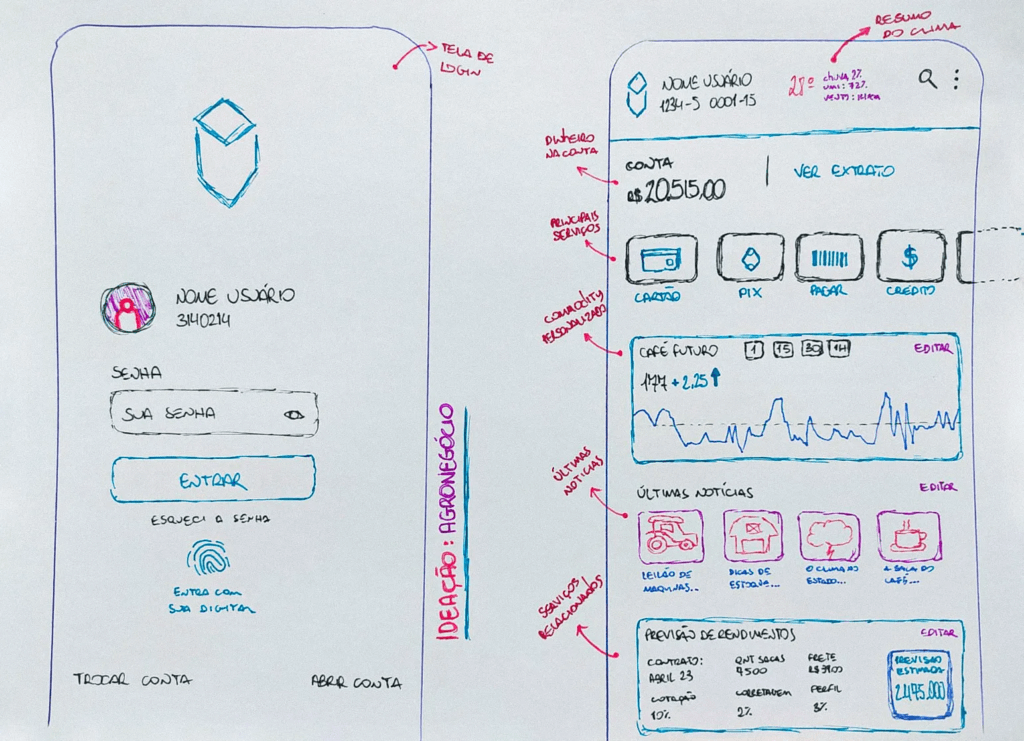 TELA DE
LOGIN
NOME USUÁRIO
3140214
SENHA
SUA SENHA
ENTRAR
ESQUECI A SENHA
ENTRA COM
SUA DIGITAL
TROCAR CONTA
ABRIR CONTA
IDEAÇÃO: AGRONEGÓCIO
RESUMO
DO CLIMA
NOME USUÁRIO
1234-5 0001-15
28º
CHUVA 2%
UMI: 72%
VENTO:
DINHEIRO
NA CONTA
CONTA
R$ 20.515,00
VER EXTRATO
PRINCIPAIS
SERVIÇOS
CARTÃO
PIX
PAGAR
CREDITO
COMMODITY
PERSONALIZADO
CAFÉ FUTURO
1 15 30 1H
EDITAR
177 + 2.25
ÚLTIMAS
NOTICIAS
ÚLTIMAS NOTÍCIAS
EDITAR
LEILÃO DE
MAQUINAS...
DICAS DE
ESTOQUE...
O CLIMA NO
ESTADO...
A SACA DO
CAFÉ...
SERVIÇOS
RELACIONADOS
PREVISÃO DE RENDIMENTOS
EDITAR
CONTRATO:
ABRIL 23
QNT SACAS
4500
FRETE
COTAÇÃO
10%
CORRETAGEM
2%
PERFIL
8%
PREVISÃO
ESTIMADA
2.475.000